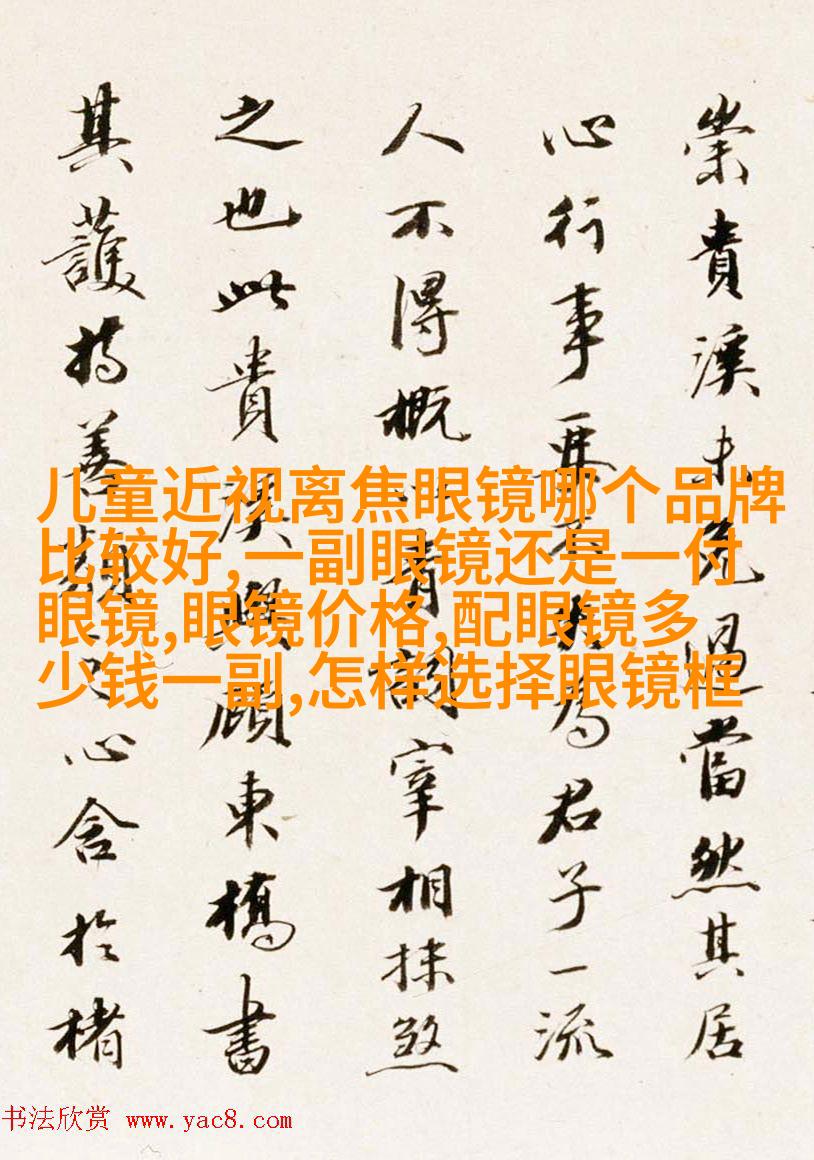 崇貴溪未免過當然其居
心行事要不失為君子一流
人不得概以青詞宰相抹煞
之也此貴溪與顧東橋書
其護持善類之心含於楮
儿童近视离焦眼镜哪个品牌
比较好,一副眼镜还是一付
眼镜,眼镜价格,配眼镜多
少钱一副,怎样选择眼镜框
书法欣赏 www.yac8.com